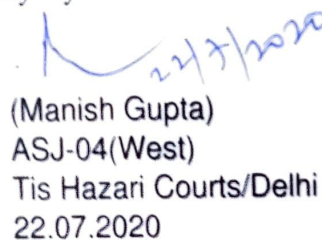 22/7/2020
(Manish Gupta)
ASJ-04(West)
Tis Hazari Courts/Delhi
22.07.2020